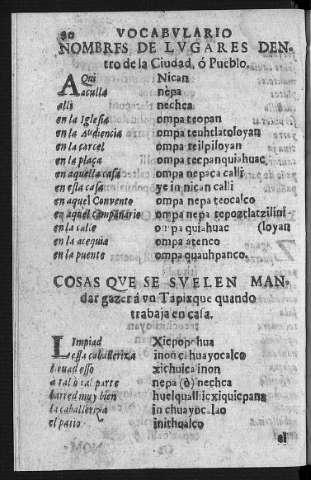 90 VOCABVLARIO
NOMBRES DE LVGARES DEN-
tro de la Ciudad, ó Pueblo.
AQui Nican
aculla nepa
alli nechca
en la Iglesia ompa teopan
en la Audiencia ompa teuhtlatoloyan
en la carcel ompa teilpiloyan
en la plaça ompa tecpanquiahuac
en aquella casa ompa nepaca calli
en esta casa ye in nican calli
en aquel Convento ompa nepa teocalco
en aquel campanario ompa nepa tepoztlatzilini-
en la calle ompa quiahuac (loyan
en la acequia ompa atenco
en la puente ompa quauhpanco.
COSAS QVE SE SVELEN MAN-
dar gazer á vn Tapixque quando
trabaja en casa.
LImpiad Xicpopohua
essa caballeriza inon cahuayocalco
lleuad esso xichuica inon
a tal ò tal parte nepa (ò) nechca
barred muy bien huelqualli xiquicpana
la caballeriza in
el patio inithualco
el